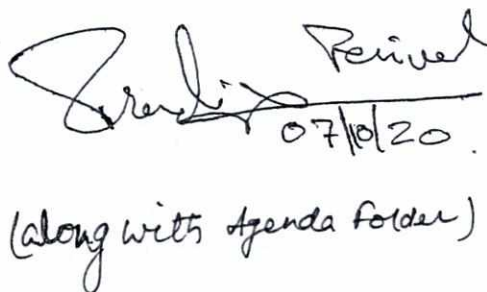 Received
07/10/20.
(along with Agenda Folder)